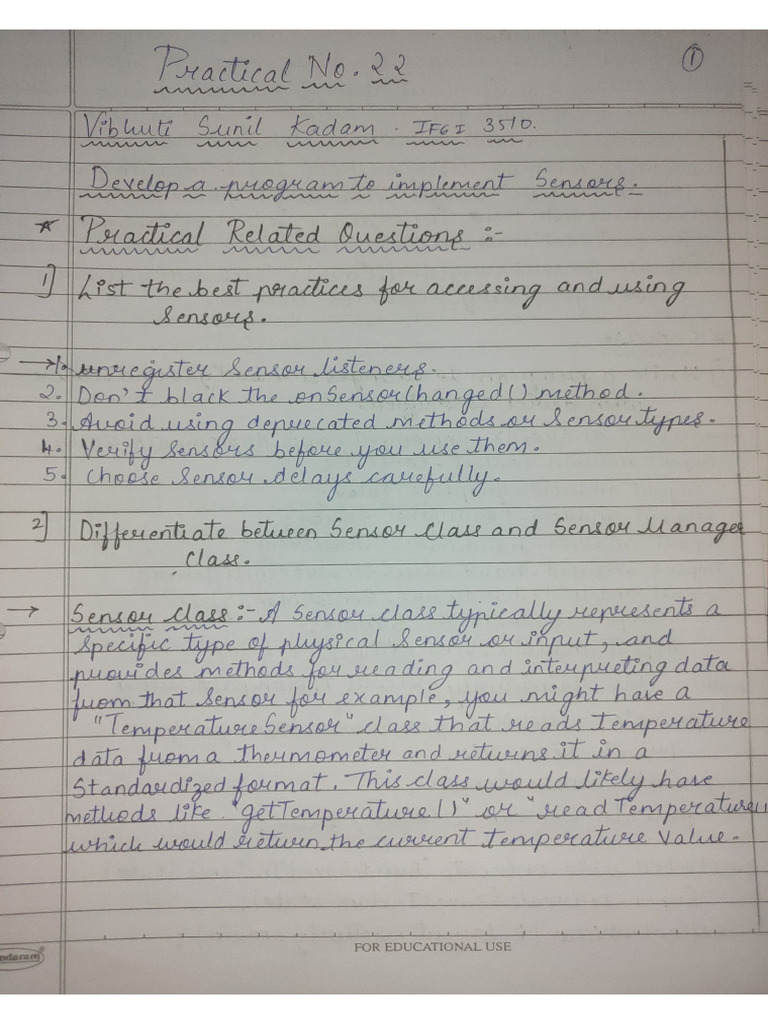 Practical No. 22
1
Vibhuti Sunil Kadam. IF6I 3510.
Develop a program to implement Sensors.
* Practical Related Questions :-
1] List the best practices for accessing and using
Sensors.
→ 1. unregister Sensor listeners.
2. Don't black the onSensorChanged() method.
3. Avoid using deprecated methods or Sensor types.
4. Verify sensors before you use them.
5. Choose Sensor delays carefully.
2] Differentiate between Sensor Class and Sensor Manager
Class.
→ Sensor Class :- A Sensor class typically represents a
specific type of physical Sensor or input, and
provides methods for reading and interpreting data
from that Sensor for example, you might have a
"TemperatureSensor" class that reads temperature
data from a thermometer and returns it in a
Standardized format. This class would likely have
methods like "getTemperature()" or "readTemperature()
which would return the current temperature value.
FOR EDUCATIONAL USE
ndaram